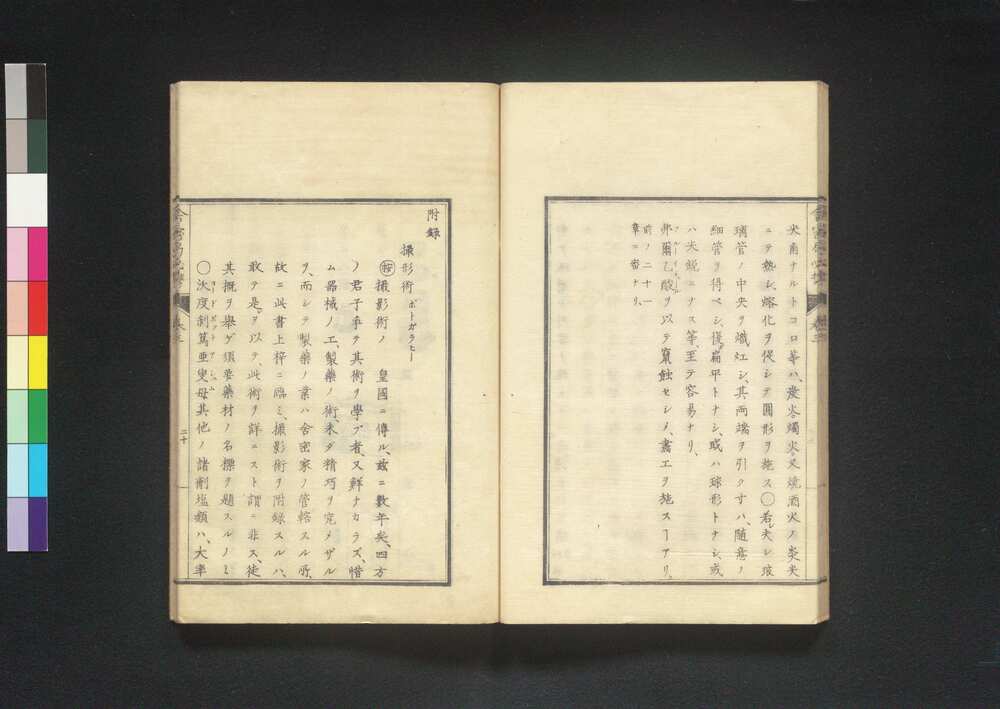 尖角ナルトコロ等ハ、炭火燭火又焼酒火ノ炎尖
ニテ熱シ熔化ヲ俟シテ圓形ヲ施ス〇若シ夫レ玻
璃管ノ中央ヲ熾紅シ、其両端ヲ引クヿハ、随意ノ
細管ヲ得ベシ、復扁平トナシ、或ハ球形トナシ、或
ハ尖鋭ニナス等、至テ容易ナリ、
弗爾乙酸ヲ以テ窠蝕セシメ、畵工ヲ施スヿアリ、
前ノ二十一
章ニ審ナリ、
附録
撮形術 ポトガラヒー
按 撮影術ノ 皇國ニ傳ル、茲ニ數年矣、四方
ノ君子争テ其術ヲ學ブ者、又鮮ナカラズ、惜
ム器械ノ工、製藥ノ術、未ダ精巧ヲ究メザル
ヲ、而シテ製藥ノ業ハ舎密家ノ管轄スル所、
故ニ此書上梓ニ臨ミ、撮影術ヲ附録スルハ、
敢テ是ヲ以テ、此術ヲ詳ニスト謂ニ非ス、徒
其概ヲ擧ゲ須要藥材ノ名標ヲ題スルノミ
〇沃度剥篤亜叟母其他ノ諸剥塩類ハ、大率
二十